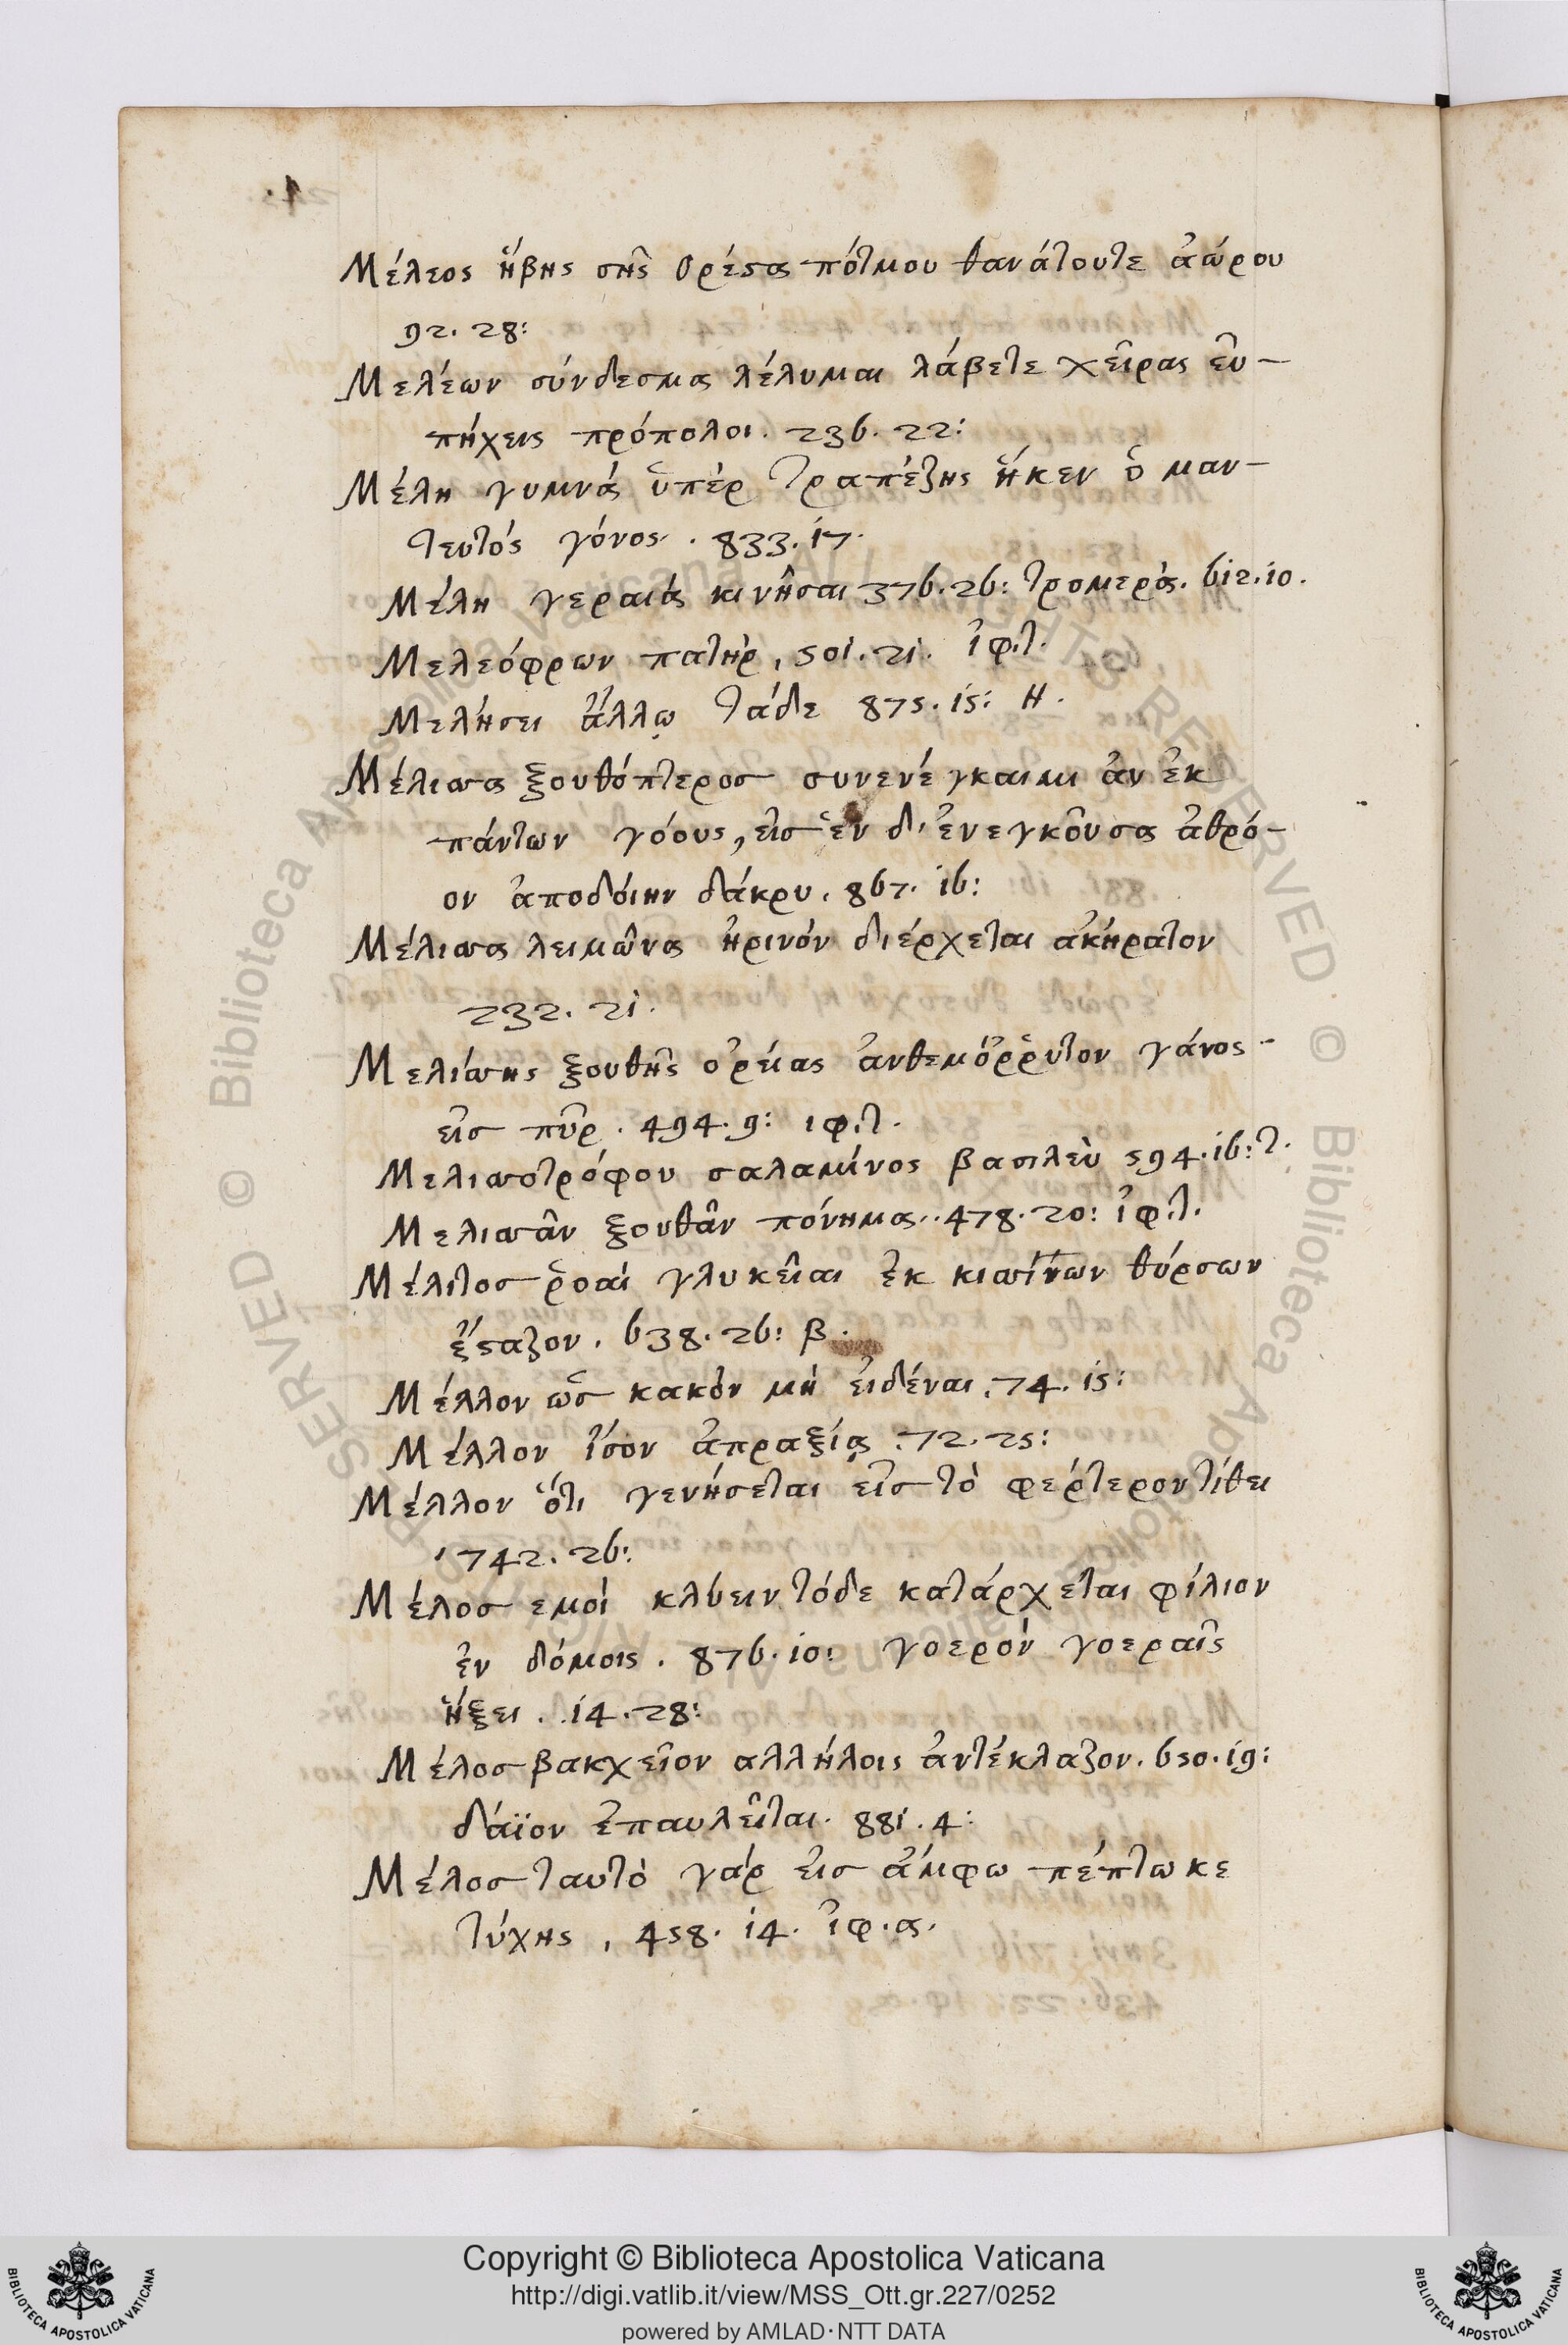 Μέλεος ἥβης σῆς Ορέστα πότμου θανάτουτε ἀώρου
92. 28:
Μελέων σύνδεσμα λέλυμαι λάβετε χεῖρας εὐ-
πήχεις πρόπολοι. 236. 22:
Μέλη γυμνά ὑπέρ τραπέζης ἧκεν ὁ μαν-
τευτός γόνος. 833. 17.
Μέλη γεραιά κινῆσαι 376. 26: τρομερά. 612. 10.
Μελεόφρων πατήρ, 501. 21. ἰφ.τ.
Μελήσει ἄλλῳ τάδε 875. 15: Η.
Μέλισσα ξουθόπτερος συνενέγκαιμι ἀν ἐκ
πάντων γόους, εἰς ἑν δ' ἐνεγκοῦσα ἀθρό-
ον ἀποδόιην δάκρυ. 867. 16:
Μέλισσα λειμῶνα ἠρινόν διέρχεται ακήρατον
232. 21.
Μελίσσης ξουθῆς ὀρείας ἀνθεμόῤῥυτον γάνος
εἰς πῦρ. 494. 9: ιφ.τ.
Μελισσοτρόφου σαλαμίνος βασιλεὺ 594. 16: τ.
Μελισσᾶν ξουθᾶν πόνημα. 478. 20: ἰφ.τ.
Μέλιτος ῥοαί γλυκεῖαι ἐκ κισσίνων θύρσων
ἔσταζον. 638. 26: β.
Μέλλον ὡς κακὸν μή εἰδέναι. 74. 15:
Μέλλον ἴσον ἀπραξίᾳ. 72. 25:
Μέλλον ὅτι γενήσεται εἰς τὸ φέρτερον τίθει
742. 26:
Μέλος εμοί κλύειν τόδε κατάρχεται φίλιον
ἐν δόμοις. 876. 10: γοερὸν γοεραῖς
ἥξει. 14. 28:
Μέλος βακχεῖον αλλήλοις ἀντέκλαζον. 650. 19:
δάϊον ἐπαυλεῖται. 881. 4:
Μέλος ταυτὸ γάρ εἰς ἄμφω πέπτωκε
τύχης, 458. 14. ἰφ.α.
Copyright © Biblioteca Apostolica Vaticana
http://digi.vatlib.it/view/MSS_Ott.gr.227/0252
powered by AMLAD·NTT DATA